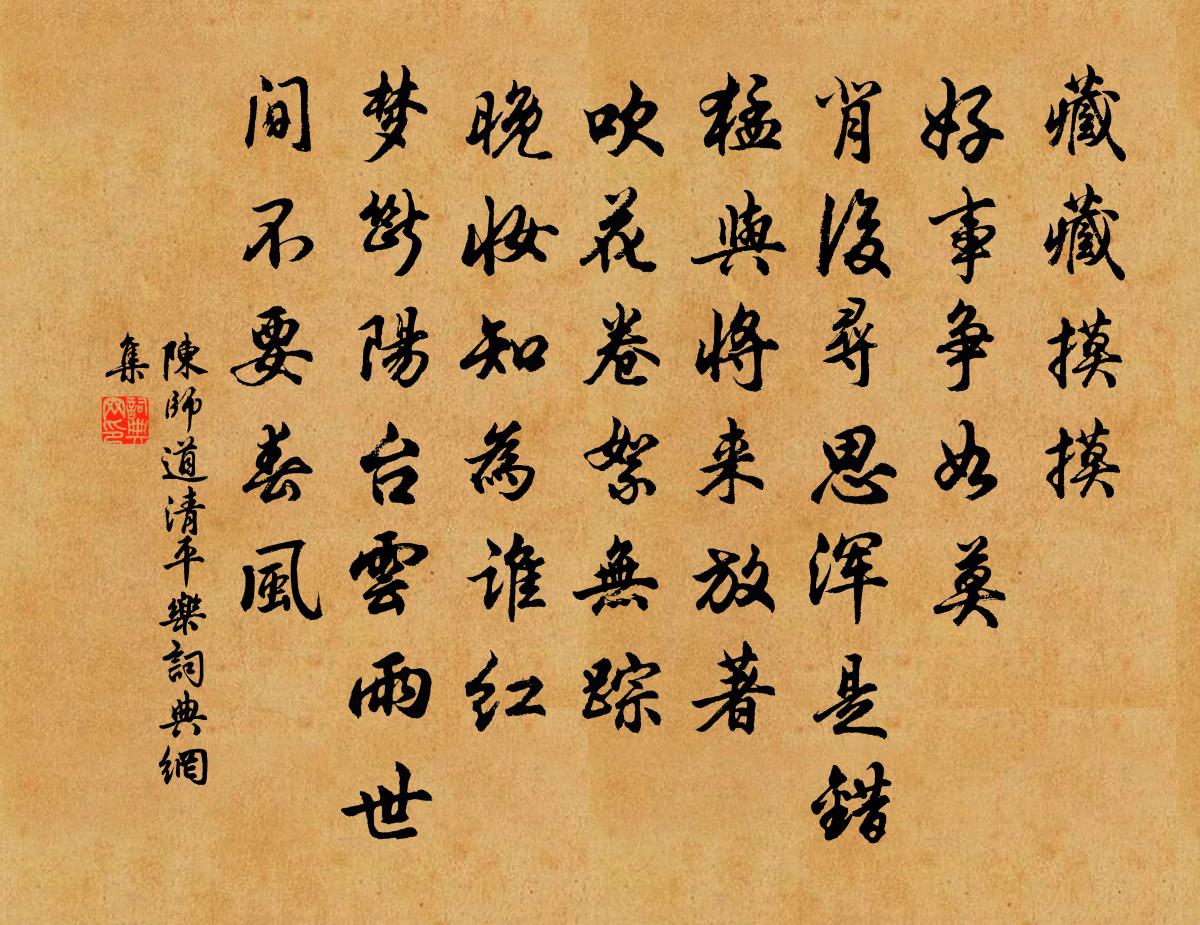 藏藏摸摸
好事争如莫
背後尋思浑是錯
猛與将来放著
吹花卷絮無踪
晚妆知為谁红
梦断陽台雲雨世
间不要春風
陳師道清平樂詞典網
集
詞典網印